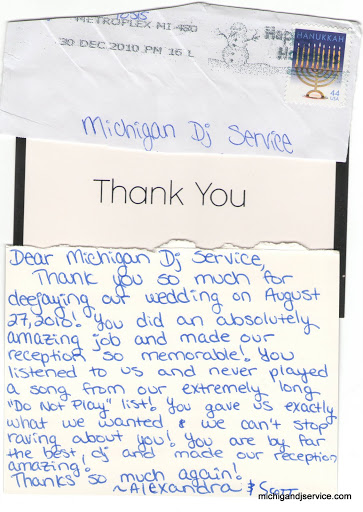 METROPLEX MI 480
30 DEC 2010 PM 16 L
HANUKKAH
44
USA
Michigan Dj Service
Thank You
Dear Michigan Dj Service,
Thank you so much for
deejaying our wedding on August
27, 2010! You did an absolutely
amazing job and made our
reception so memorable! You
listened to us and never played
a song from our extremely long
"Do Not Play" list! You gave us exactly
what we wanted & we can't stop
raving about you! You are by far
the best dj and made our reception
amazing!
Thanks so much again!
~Alexandra & Scott
michigandjservice.com